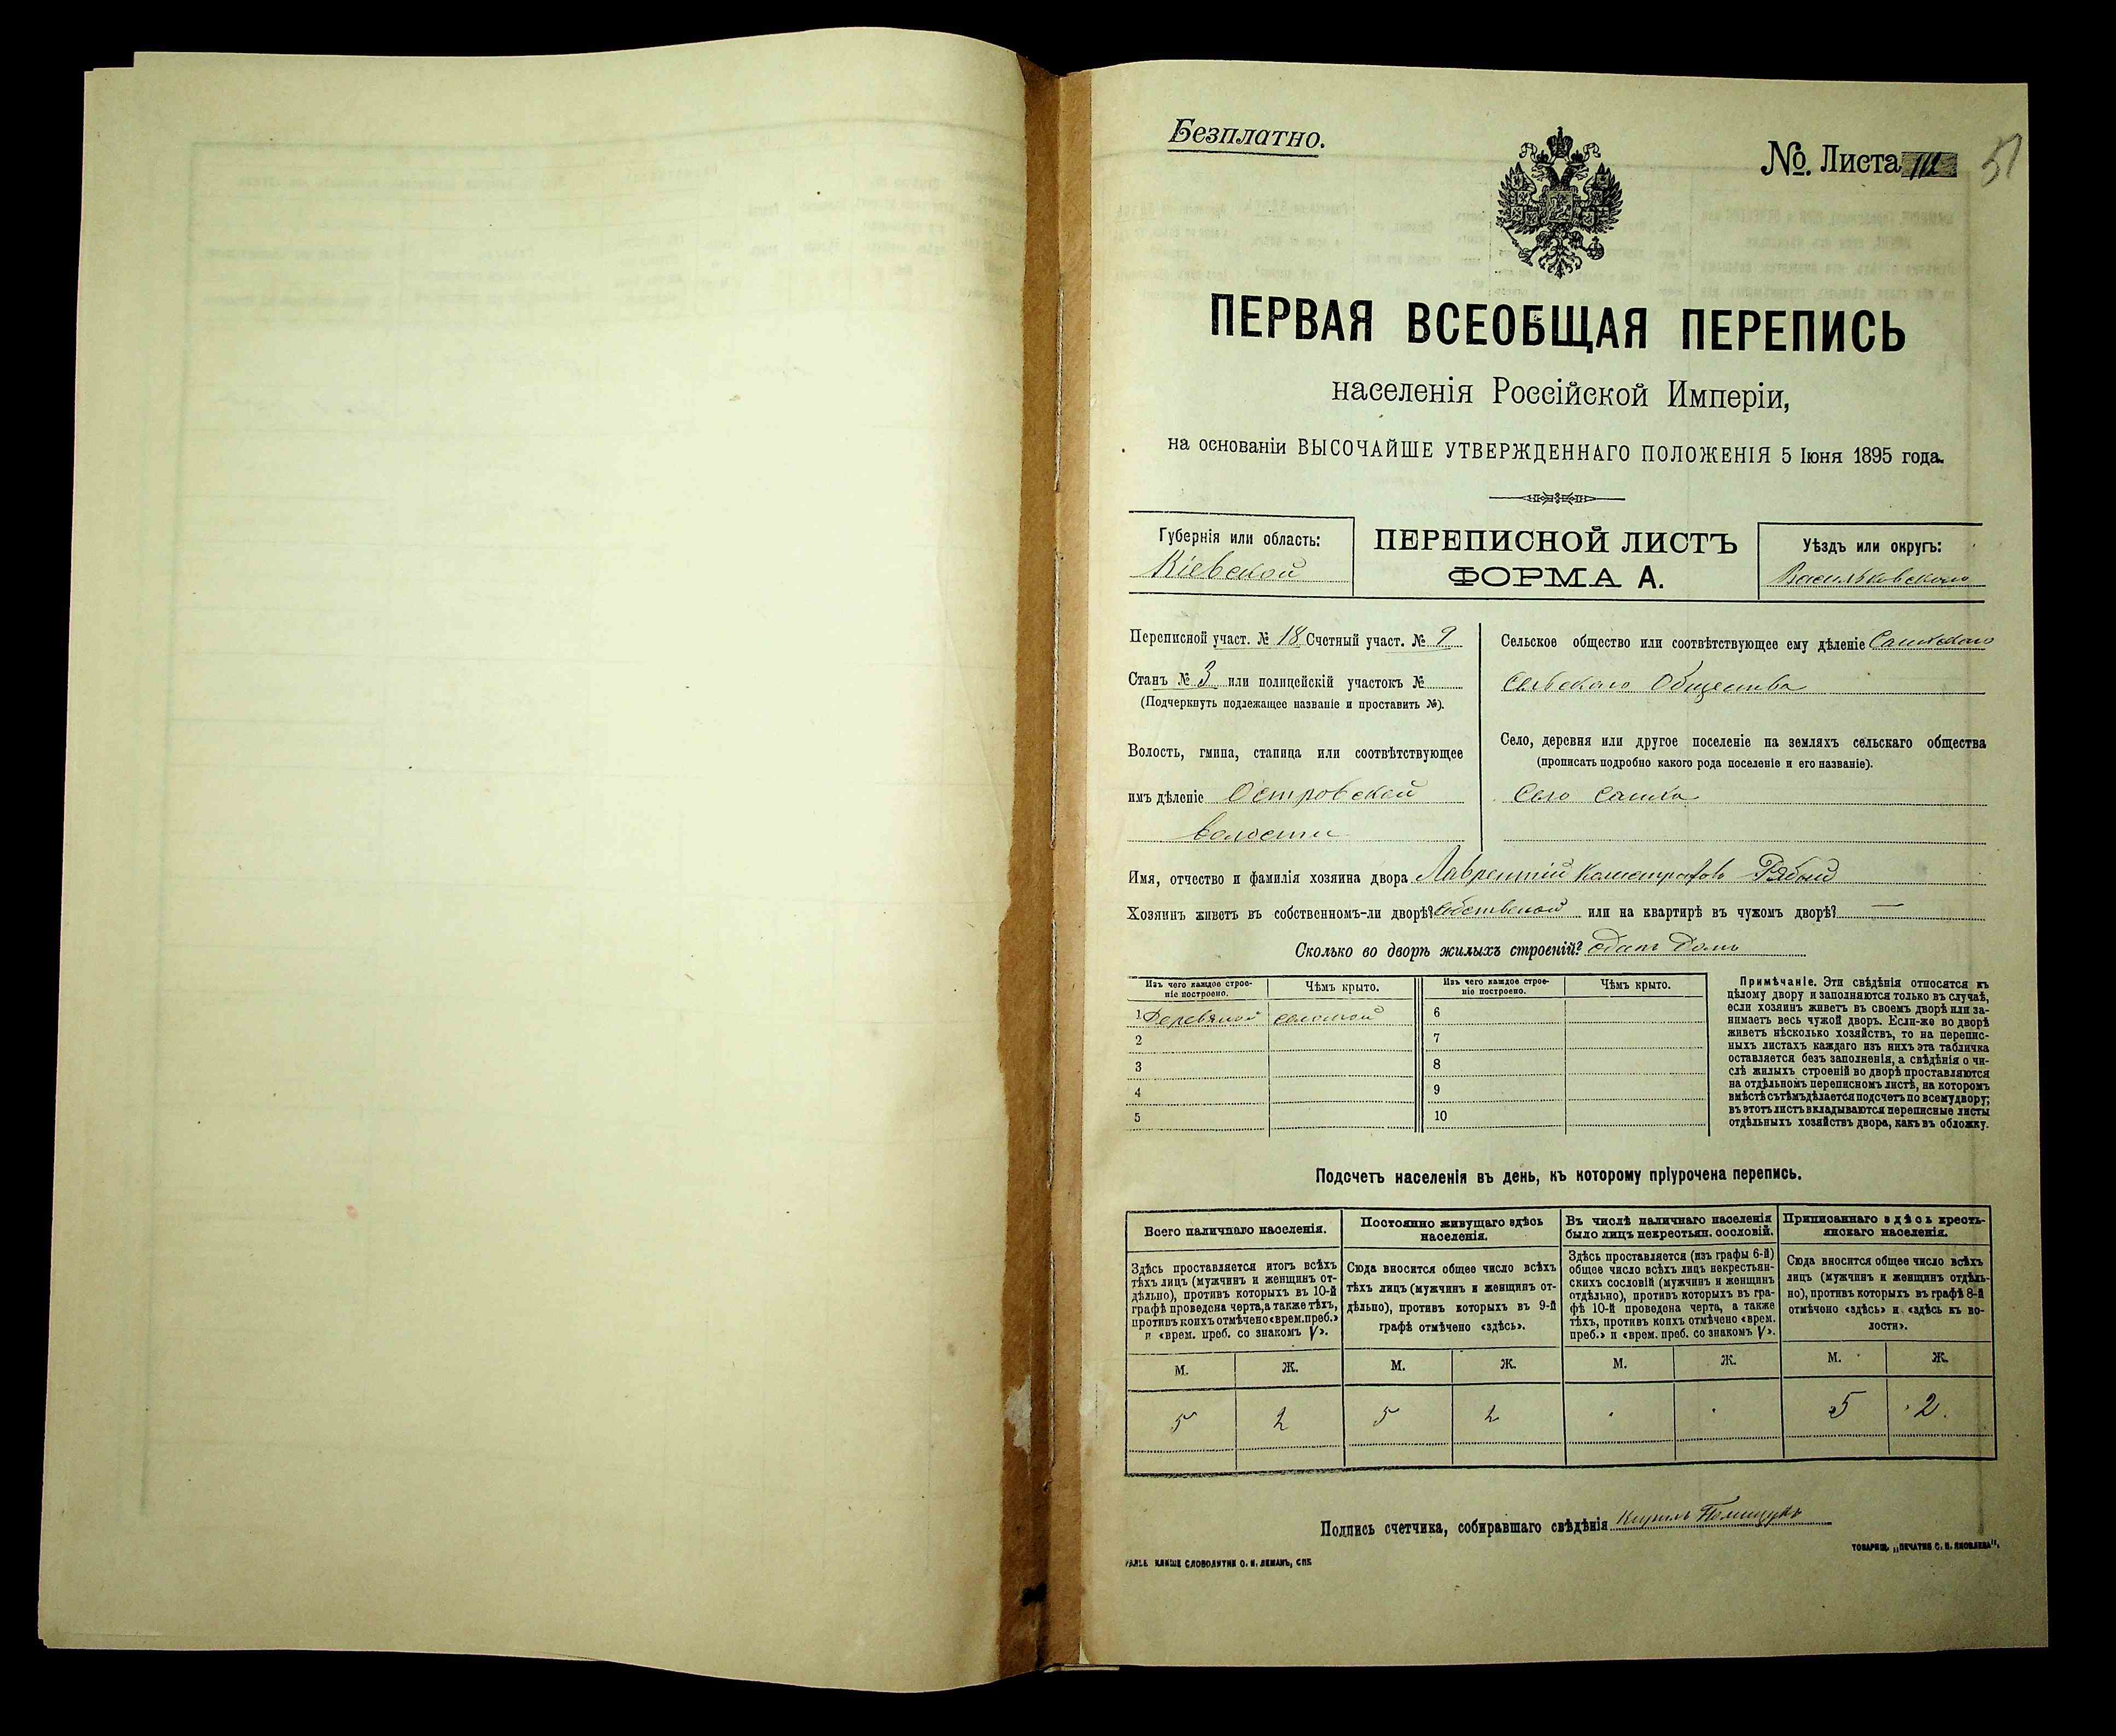 Безплатно.
№. Листа 51
ПЕРВАЯ ВСЕОБЩАЯ ПЕРЕПИСЬ
населенія Россійской Имперіи,
на основаніи ВЫСОЧАЙШЕ УТВЕРЖДЕННАГО ПОЛОЖЕНІЯ 5 Іюня 1895 года.
Губернія или область:
Кіевской
ПЕРЕПИСНОЙ ЛИСТЪ
ФОРМА А.
Уѣздъ или округъ:
Васильковскаго
Переписной участ. № 18 Счетный участ. № 9
Станъ № 3 или полицейскій участокъ №
(Подчеркнуть подлежащее названіе и проставить №).
Волость, гмина, станица или соотвѣтствующее
имъ дѣленіе Островской
волости
Сельское общество или соотвѣтствующее ему дѣленіе
Сельскаго Общества
Село, деревня или другое поселеніе на земляхъ сельскаго общества
(прописать подробно какого рода поселеніе и его названіе).
Село
Имя, отчество и фамилія хозяина двора Лаврентій Калистратовъ Рябый
Хозяинъ живетъ въ собственномъ-ли дворѣ? или на квартирѣ въ чужомъ дворѣ? —
Сколько во дворѣ жилыхъ строеній? одинъ домъ
Изъ чего каждое строе-
ніе построено.
Чѣмъ крыто.
Изъ чего каждое строе-
ніе построено.
Чѣмъ крыто.
1 Деревяной соломой
2
3
4
5
6
7
8
9
10
Примѣчаніе. Эти свѣдѣнія относятся къ
цѣлому двору и заполняются только въ случаѣ,
если хозяинъ живетъ въ своемъ дворѣ или за-
нимаетъ весь чужой дворъ. Если-же во дворѣ
живетъ нѣсколько хозяйствъ, то на перепис-
ныхъ листахъ каждаго изъ нихъ эта табличка
оставляется безъ заполненія, а свѣдѣнія о чи-
слѣ жилыхъ строеній во дворѣ проставляются
на отдѣльномъ переписномъ листѣ, на которомъ
вмѣстѣ съ тѣмъ дѣлается подсчетъ по всему двору;
въ этотъ листъ вкладываются переписные листы
отдѣльныхъ хозяйствъ двора, какъ въ обложку.
Подсчетъ населенія въ день, къ которому пріурочена перепись.
Всего наличнаго населенія.
Здѣсь проставляется итогъ всѣхъ
тѣхъ лицъ (мужчинъ и женщинъ от-
дѣльно), противъ которыхъ въ 10-й
графѣ проведена черта, а также тѣхъ,
противъ коихъ отмѣчено «врем. преб.»
и «врем. преб. со знакомъ V».
Постоянно живущаго здѣсь
населенія.
Сюда вносится общее число всѣхъ
тѣхъ лицъ (мужчинъ и женщинъ от-
дѣльно), противъ которыхъ въ 9-й
графѣ отмѣчено «здѣсь».
Въ числѣ наличнаго населенія
было лицъ некрестьян. сословій.
Здѣсь проставляется (изъ графы 6-й)
общее число всѣхъ лицъ некрестьян-
скихъ сословій (мужчинъ и женщинъ
отдѣльно), противъ которыхъ въ гра-
фѣ 10-й проведена черта, а также
тѣхъ, противъ коихъ отмѣчено «врем.
преб.» и «врем. преб. со знакомъ V».
Приписаннаго здѣсь кресть-
янскаго населенія.
Сюда вносится общее число всѣхъ
лицъ (мужчинъ и женщинъ отдѣль-
но), противъ которыхъ въ графѣ 8-й
отмѣчено «здѣсь» и «здѣсь къ во-
лости».
М. Ж. М. Ж. М. Ж. М. Ж.
5 2 5 2 5 2
Подпись счетчика, собиравшаго свѣдѣнія Кирилъ
КЛИШЕ СЛОВОЛИТНИ О. И. ЛЕМАНЪ, СПБ
ТОВАРИЩ. „ПЕЧАТНЯ С. П. ЯКОВЛЕВА".